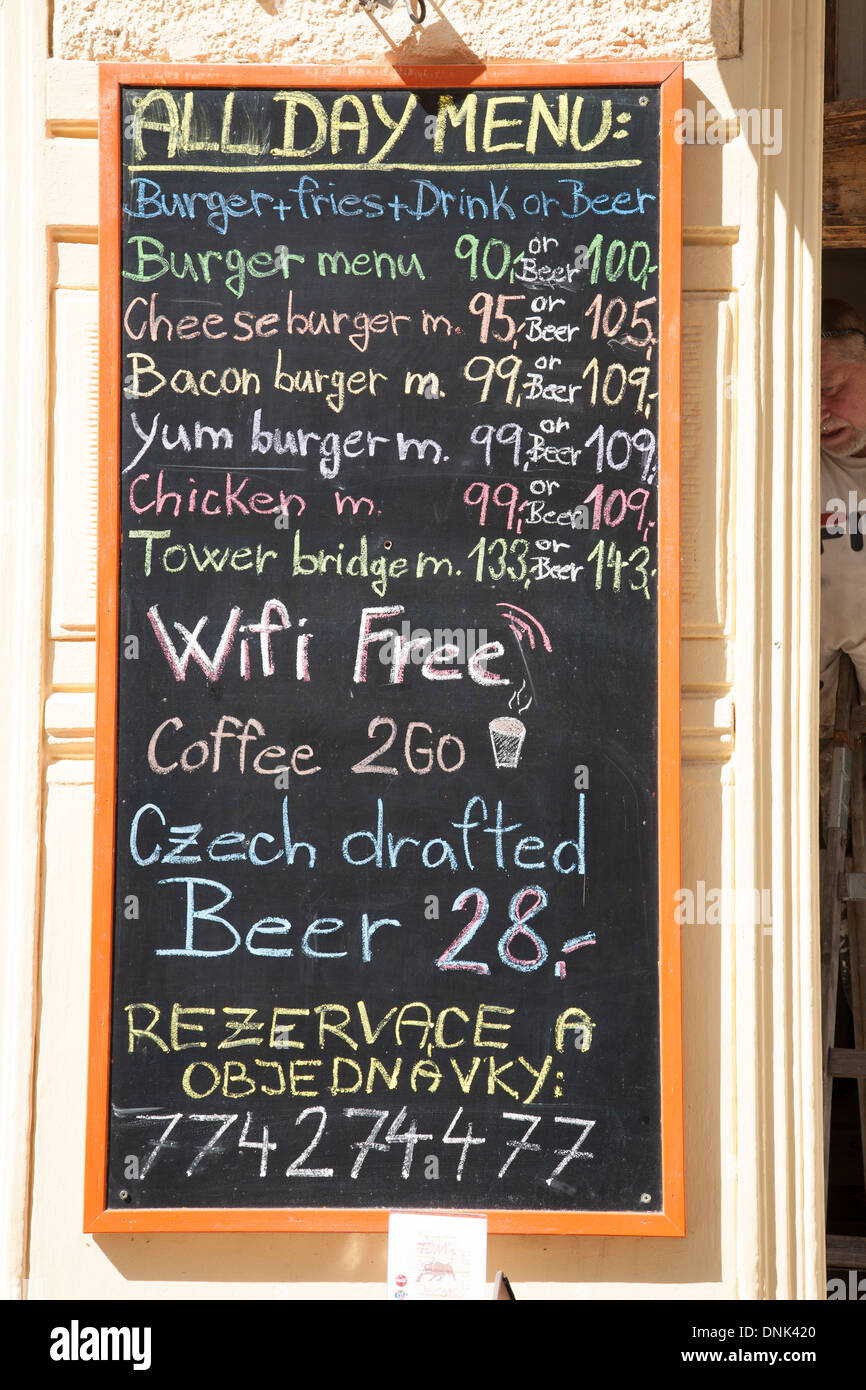 ALL DAY MENU:
Burger+fries+Drink or Beer
Burger menu 90,- or Beer 100,-
Cheeseburger m. 95,- or Beer 105,-
Bacon burger m. 99,- or Beer 109,-
Yum burger m. 99,- or Beer 109,-
Chicken m. 99,- or Beer 109,-
Tower bridge m. 133,- or Beer 143,-
Wifi Free
Coffee 2Go
Czech drafted
Beer 28,-
REZERVACE A
OBJEDNÁVKY:
774274477
alamy
Image ID: DNK420
www.alamy.com